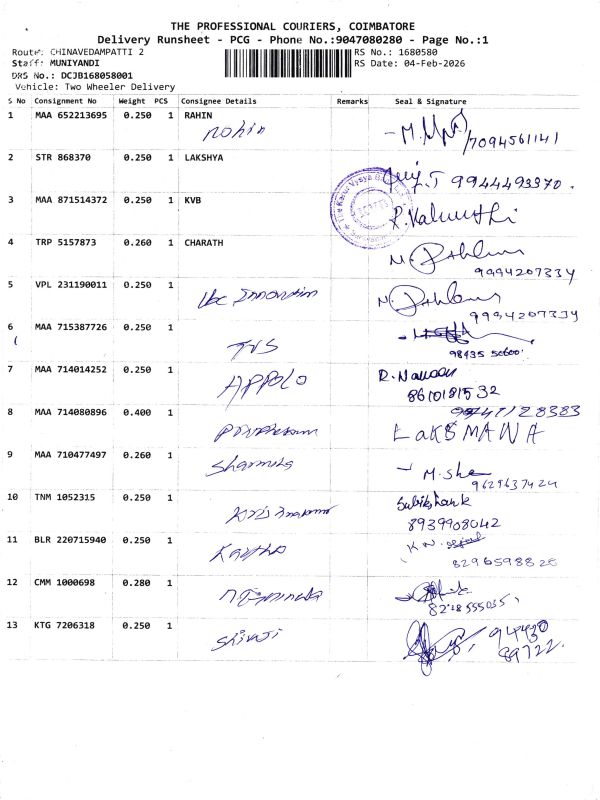 THE PROFESSIONAL COURIERS, COIMBATORE
Delivery Runsheet - PCG - Phone No.:9047080280 - Page No.:1
Route: CHINAVEDAMPATTI 2 RS No.: 1680580
Staff: MUNIYANDI RS Date: 04-Feb-2026
DRS No.: DCJB168058001
Vehicle: Two Wheeler Delivery
S No Consignment No Weight PCS Consignee Details Remarks Seal & Signature
1 MAA 652213695 0.250 1 RAHIN
7094561141
2 STR 868370 0.250 1 LAKSHYA
9944493370.
3 MAA 871514372 0.250 1 KVB
4 TRP 5157873 0.260 1 CHARATH
9994207334
5 VPL 231190011 0.250 1
9994207334
6 MAA 715387726 0.250 1
TVS
98435 50600
7 MAA 714014252 0.250 1
APPOLO
8610181532
8 MAA 714080896 0.400 1
LaKSMANA
9 MAA 710477497 0.260 1
Sharmila
M.Sha
9629637424
10 TNM 1052315 0.250 1
8939908042
11 BLR 220715940 0.250 1
K N
8296598828
12 CMM 1000698 0.280 1
13 KTG 7206318 0.250 1
Shivaji
94430
89722.